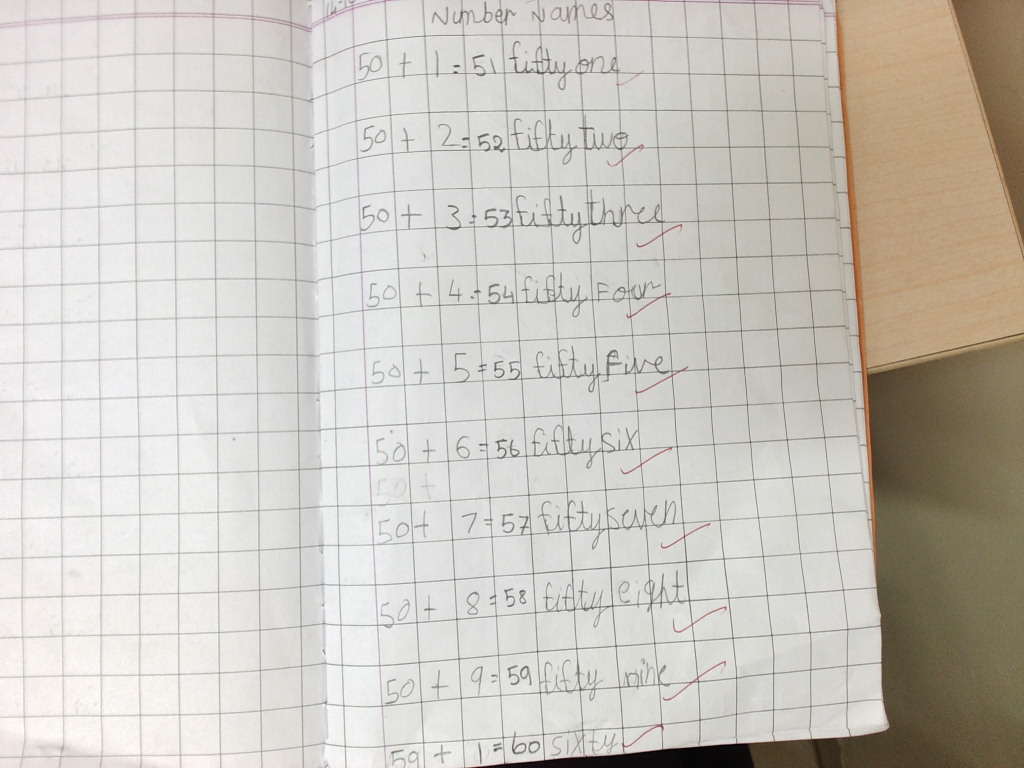 Number Names
50 + 1 = 51 fifty one
50 + 2 = 52 fifty two
50 + 3 = 53 fifty three
50 + 4 = 54 fifty Four
50 + 5 = 55 fifty Five
50 + 6 = 56 fifty six
50 +
50 + 7 = 57 fifty seven
50 + 8 = 58 fifty eight
50 + 9 = 59 fifty nine
59 + 1 = 60 sixty